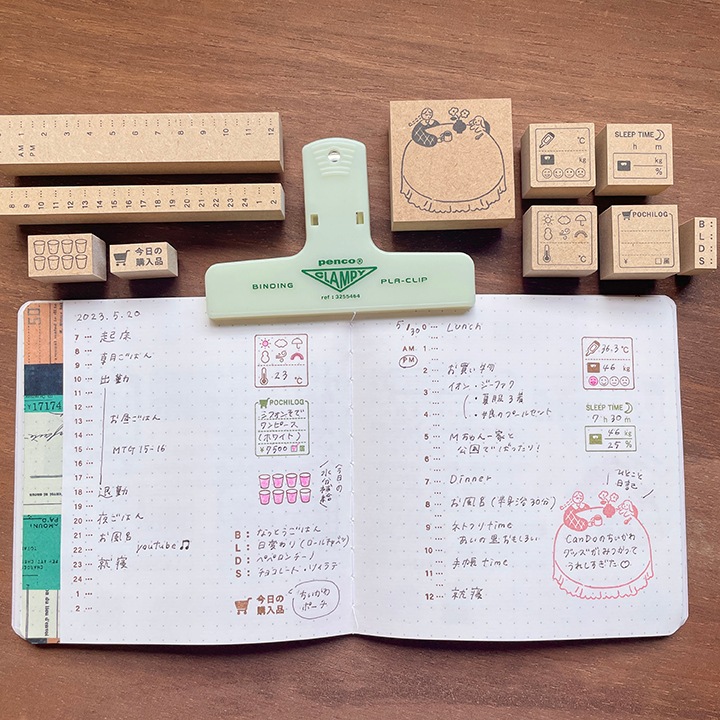 1 2 3 4 5 6 7 8 9 10 11 12
AM
PM
8 9 10 11 12 13 14 15 16 17 18 19 20 21 22 23 24 1 2
今日の
購入品
penco®
CLAMPY
BINDING PLA-CLIP
ref : 3255464
℃
kg
%
SLEEP TIME
h m
kg
%
℃
POCHILOG
¥
B :
L :
D :
S :
50
¥17174
AMOUNT
PAID
2023.5.20
7 起床
8 朝ごはん
9
10 出勤
11
12
13 お昼ごはん
14
15 MTG 15-16
16
17
18 退勤
19
20 夜ごはん
21 お風呂
22 youtube♫
23 就寝
24
1
2
23 ℃
POCHILOG
シフォンそで
ワンピース
(ホワイト)
¥9500
今日の
水分補給
B : なっとうごはん
L : 日変わり(ロールキャベツ)
D : ペペロンチーノ
S : チョコレート・ソイラテ
今日の
購入品
ちいかわ
ポーチ
5/30
AM
PM
0 Lunch
1
2 お買い物
3 イオン・ジーフック
・夏服3着
4
5 Mちゃん一家と
6 公園でばったり!
7 Dinner
8 お風呂(半身浴30分)
9 ネトフリtime
10
11 手帳time
12 就寝
36.3 ℃
46 kg
SLEEP TIME
7 h 30 m
46 kg
25 %
ひとこと
日記
CanDoのちいかわ
グッズがみつかって
うれしすぎた♡